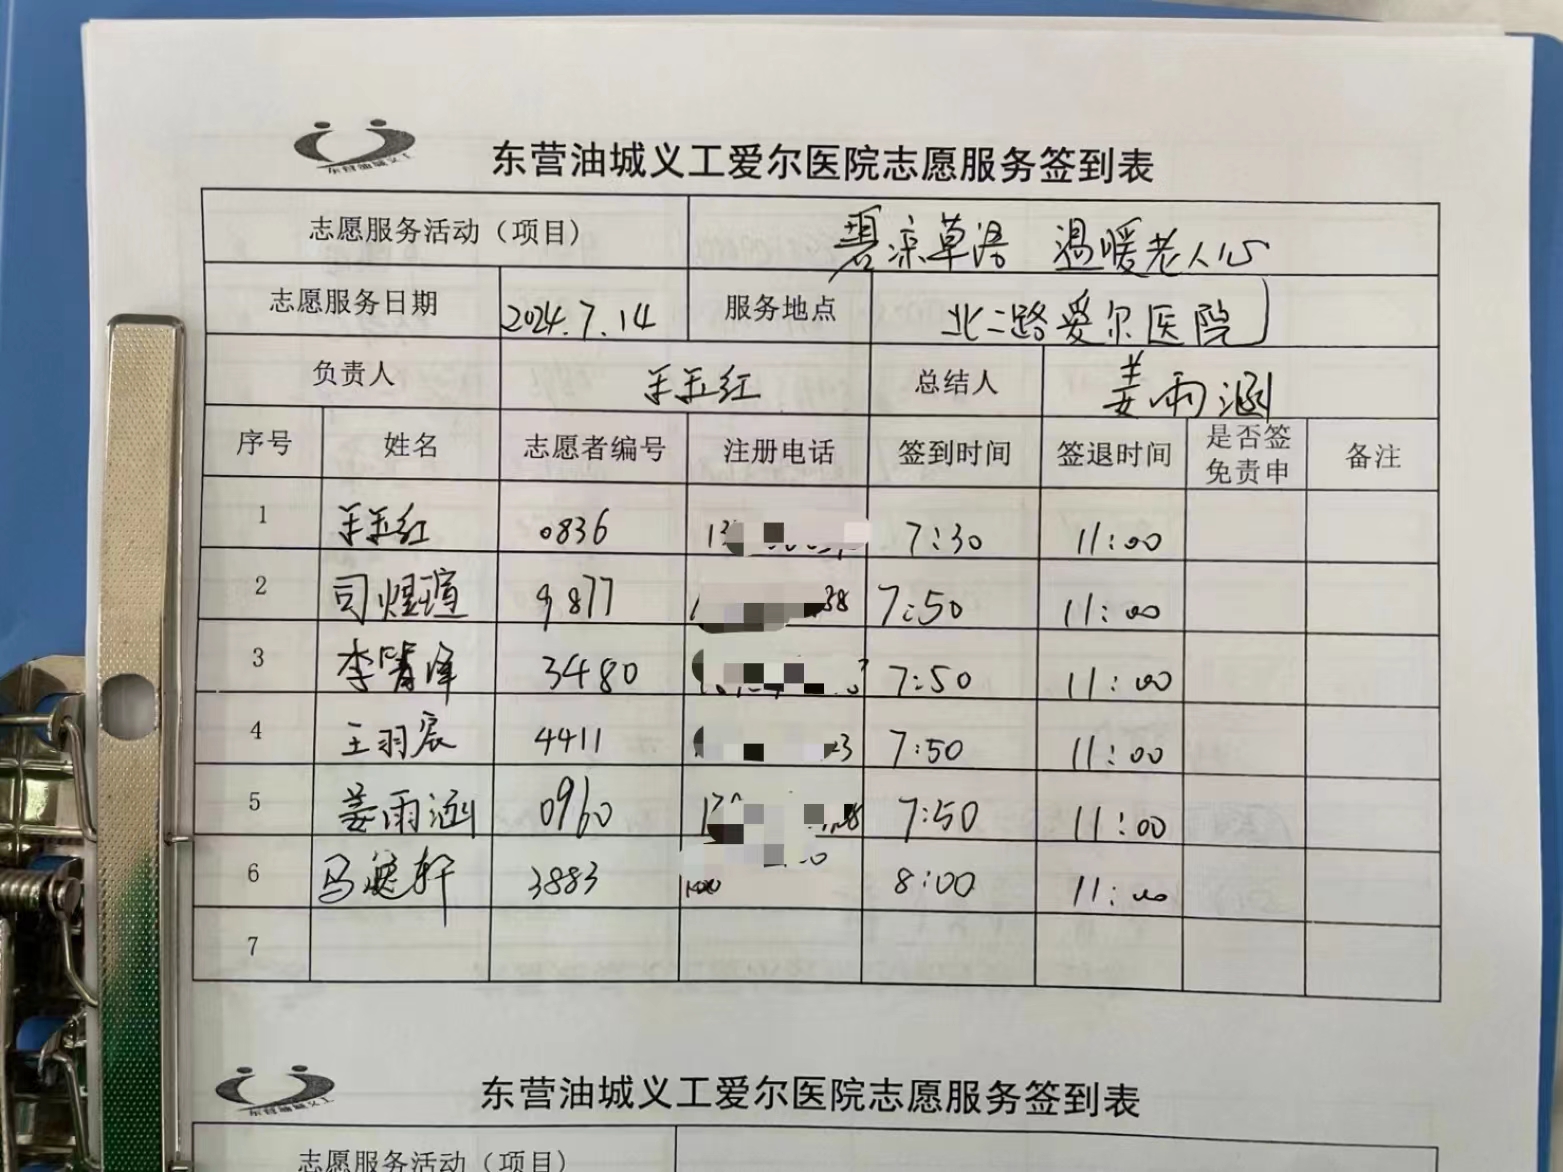 东营油城义工
东营油城义工爱尔医院志愿服务签到表
志愿服务活动（项目） 碧凉草语 温暖老人心
志愿服务日期 2024.7.14 服务地点 北二路爱尔医院
负责人 王玉红 总结人 姜雨涵
序号 姓名 志愿者编号 注册电话 签到时间 签退时间 是否签免责申 备注
1 王玉红 0836 7:30 11:00
2 司煜瑄 9877 38 7:50 11:00
3 李青泽 3480 7:50 11:00
4 王羽宸 4411 23 7:50 11:00
5 姜雨涵 0960 7:50 11:00
6 马 轩 3883 8:00 11:00
7
东营油城义工
东营油城义工爱尔医院志愿服务签到表
志愿服务活动（项目）